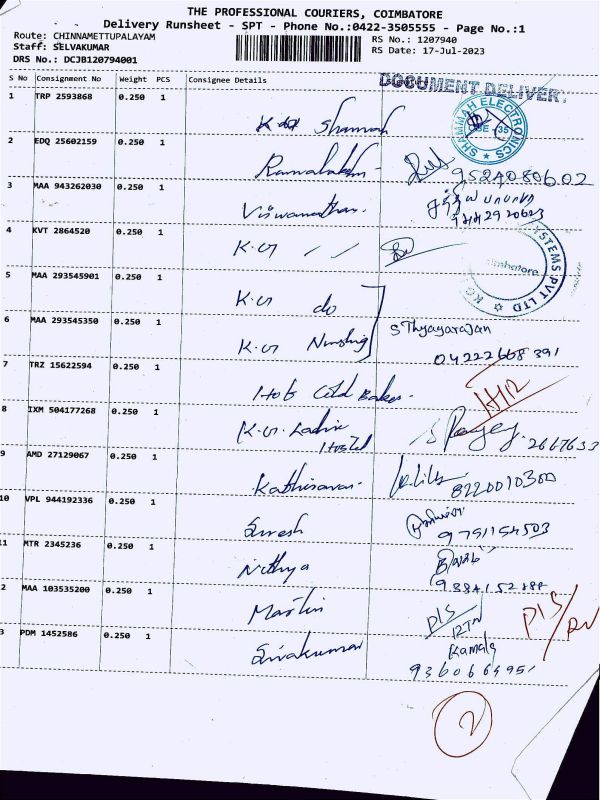 THE PROFESSIONAL COURIERS, COIMBATORE
Delivery Runsheet - SPT - Phone No.:0422-3505555 - Page No.:1
Route: CHINNAMETTUPALAYAM
Staff: SELVAKUMAR
DRS No.: DCJB120794001
RS No.: 1207940
RS Date: 17-Jul-2023
S No Consignment No Weight PCS Consignee Details
DOCUMENT DELIVERY
1 TRP 2593868 0.250 1 Shammah
SHAMMAH ELECTRONICS
CBE 35
2 EDQ 25602159 0.250 1 Ramalakshmi
9524080602
3 MAA 943262030 0.250 1 Viswanathan.
4 KVT 2864520 0.250 1 K.G
SYSTEMS PVT LTD
Coimbatore
5 MAA 293545901 0.250 1 K.G do
6 MAA 293545350 0.250 1 K.G Nursing
S Thyagarajan
04222668391
7 TRZ 15622594 0.250 1 Hot Cold Bakes.
8 IXM 504177268 0.250 1 K.G. Ladies Hostel
2667633
9 AMD 27129067 0.250 1 Kathiravan.
8220010300
10 VPL 944192336 0.250 1 Suresh
9791154503
11 MTR 2345236 0.250 1 Nithya
2 MAA 103535200 0.250 1 Martin
D/S
D/S
3 PDM 1452586 0.250 1 Sivakumar
Kamala
2